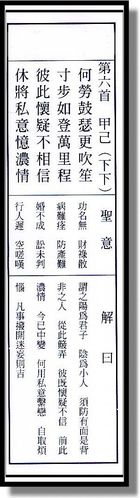 第六首 甲己(下下)
何勞鼓瑟更吹笙
寸步如登萬里程
彼此懷疑不相信
休將私意憶濃情
聖意
功名無 財祿散
病難痊 防產難
婚不成 訟未判
行人遲 空嗟嘆
解曰
謂之陽爲君子 陰爲小人 須防有面是背
非之人 從此簸弄 彼既懷疑不信 前此
濃情 今已中變 何用私意繫戀 自取煩
惱 凡事撥開迷妄則吉